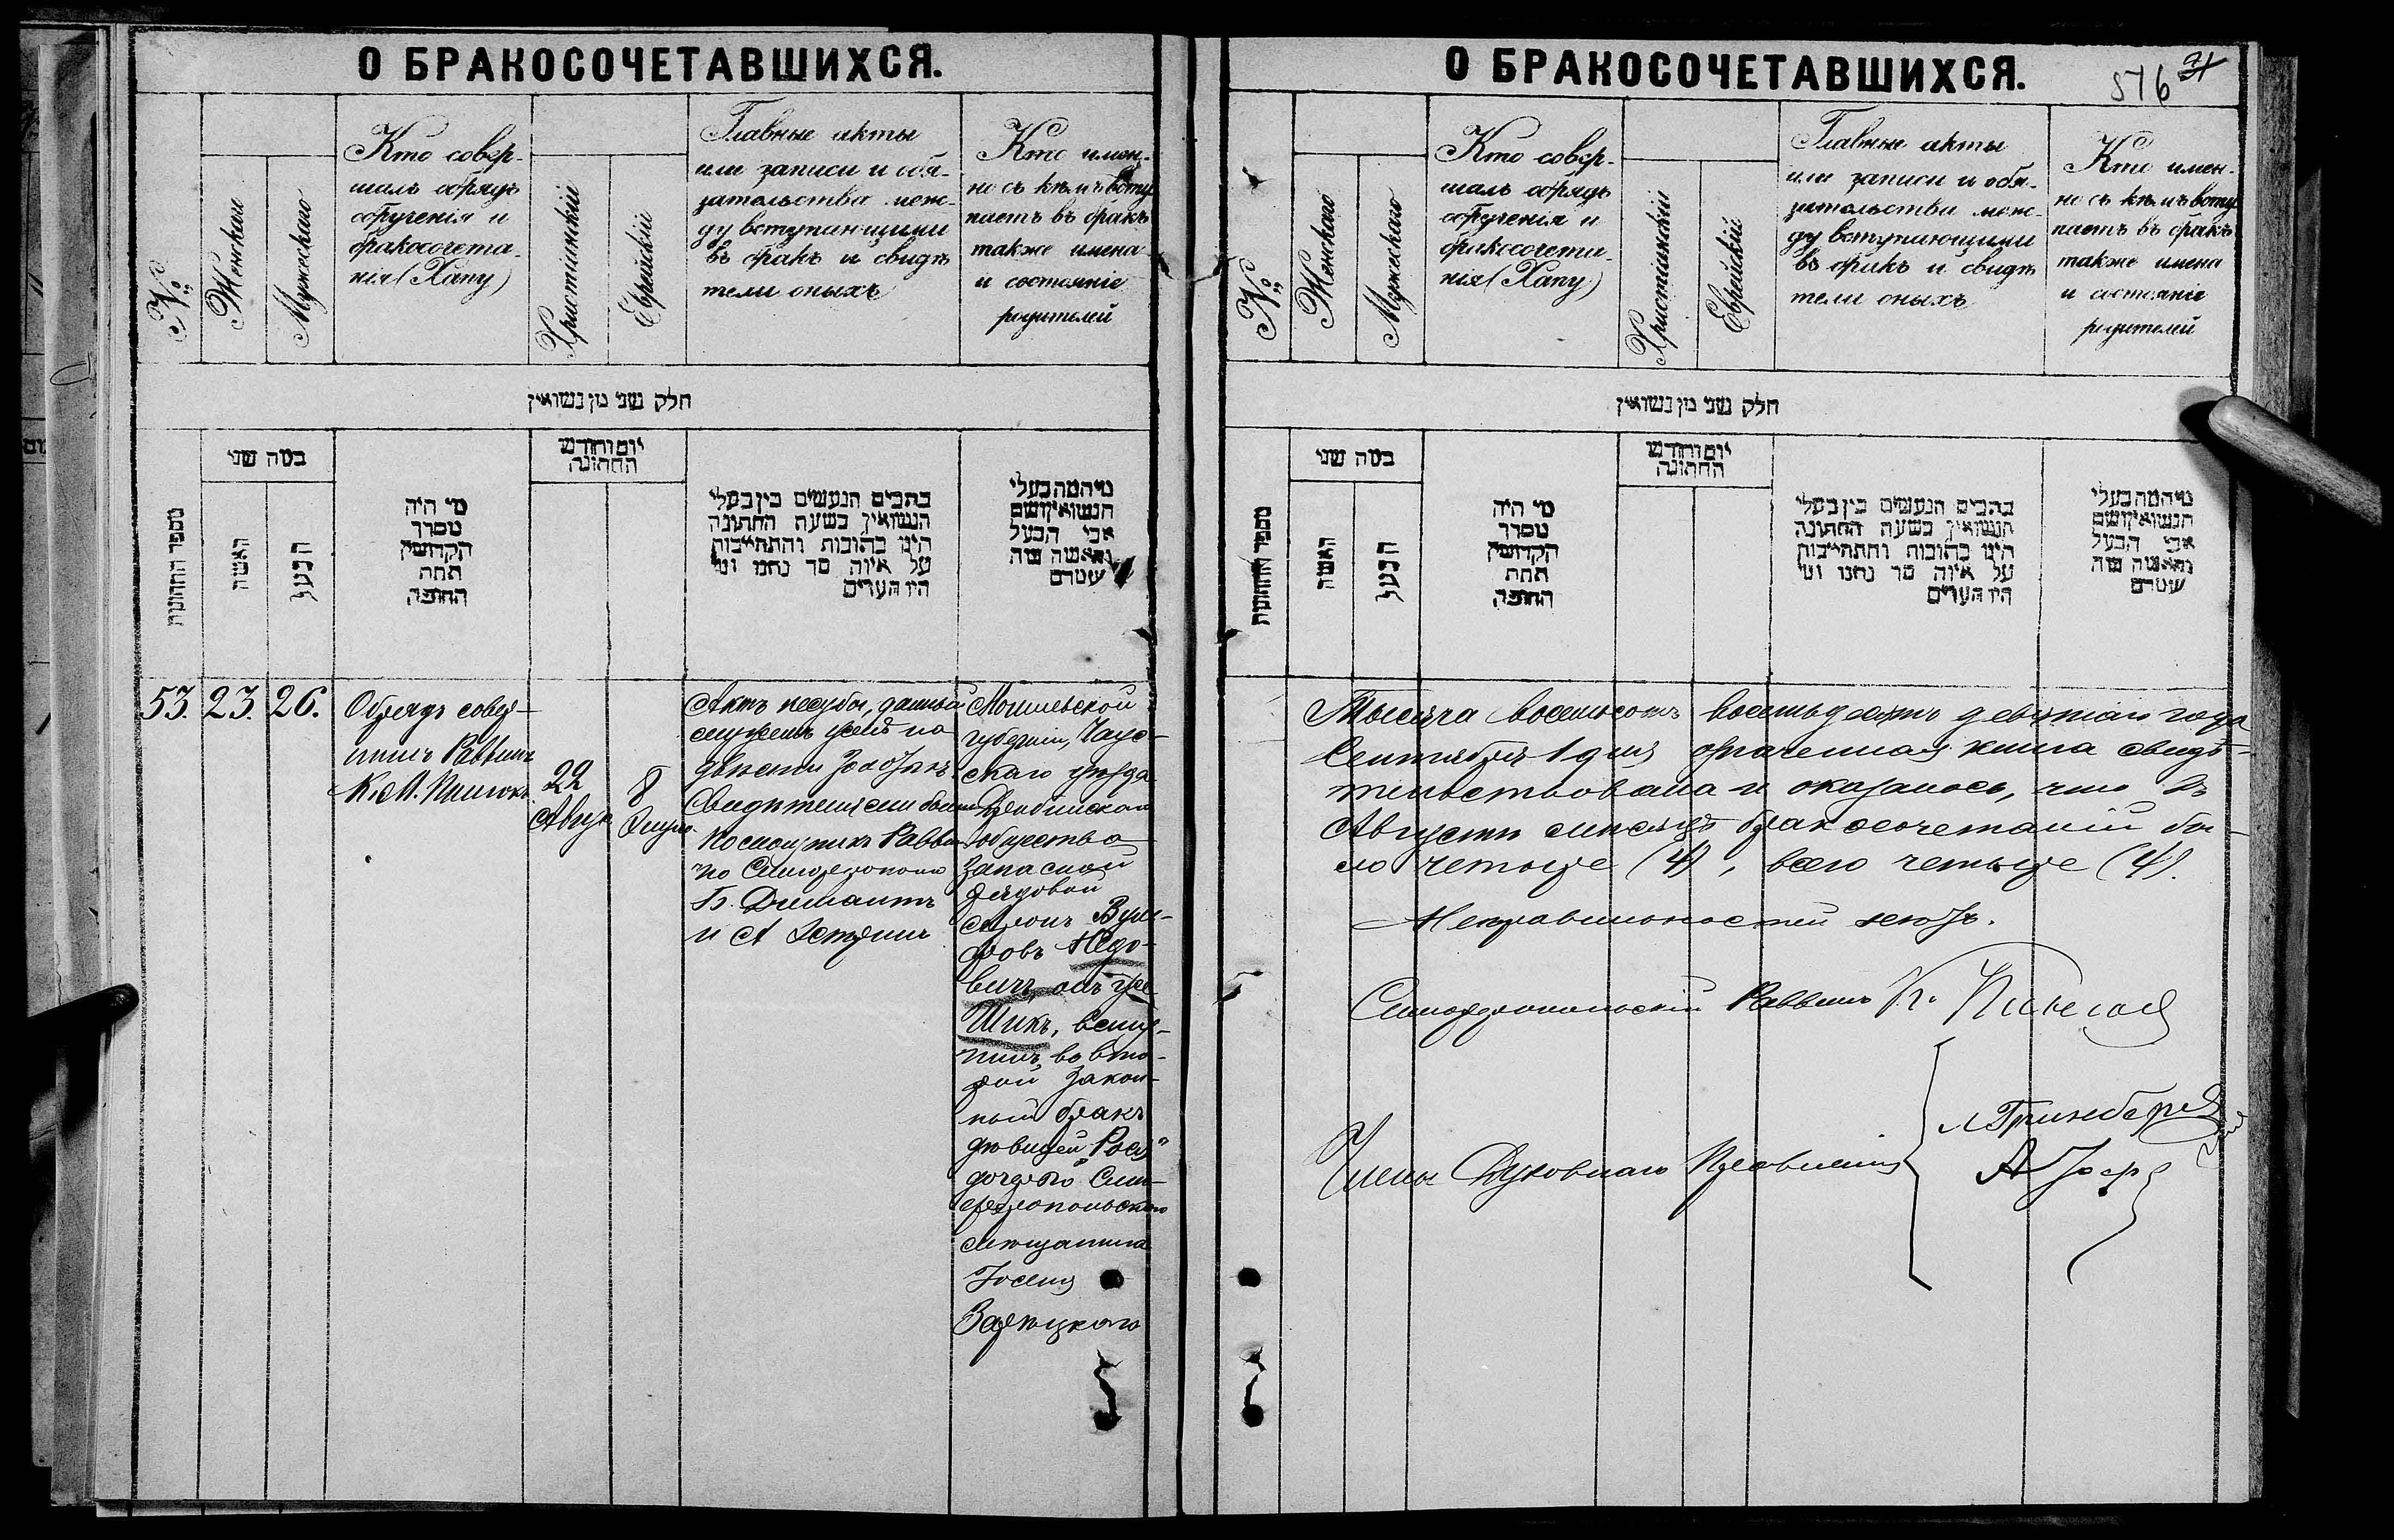 О БРАКОСОЧЕТАВШИХСЯ.
№
Женскаго
Мужескаго
Кто совер-
шалъ обрядъ
обрученія и
бракосочета-
нія (Хапу)
Христіянскій
Еврейскій
Главные акты
или записи и обя-
зательства меж-
ду вступающими
въ бракъ и свидѣ
тели оныхъ
Кто имен-
но съ кѣмъ всту
паетъ въ бракъ
также имена
и состояніе
родителей
חלק שני מן נשואין
מספר החתונות
כמה שני
האשה
הבעל
מי היה
מסדר
הקדושין
תחת
החופה
יום וחודש
החתונה
כתבים הנעשים בין בעלי
הנשואין בשעת החתונה
היינו כתובות והתחייבות
על איזה סך נתנו ומי
היו העדים
מי המה בעלי
הנשואין ושם
אבי הבעל
והאשה ומה
שמם
53. 23. 26.
Обрядъ совер-
шилъ Раввинъ
22
Август
8
Актъ кесубы, данный
мужемъ женѣ на
двѣсти зол. зак.
Свидѣтелями были
Помощникъ Равви
по Симферополю
Б. Димантъ
и А
Могилевской
губерніи, Чаус-
скаго уѣзда
общества
запасной
рядовой
Аронъ Вуль-
фовъ
Шикъ, всту-
пилъ во вто-
рой закон-
ный бракъ
съ дѣвицей „Рося“
дочерью Сим-
феропольскаго
мѣщанина
Іосели
Зарѣцкаго
О БРАКОСОЧЕТАВШИХСЯ.
576
№
Женскаго
Мужескаго
Кто совер-
шалъ обрядъ
обрученія и
бракосочета-
нія (Хапу)
Христіянскій
Еврейскій
Главные акты
или записи и обя-
зательства меж-
ду вступающими
въ бракъ и свидѣ
тели оныхъ
Кто имен-
но съ кѣмъ всту
паетъ въ бракъ
также имена
и состояніе
родителей
חלק שני מן נשואין
מספר החתונות
כמה שני
האשה
הבעל
מי היה
מסדר
הקדושין
תחת
החופה
יום וחודש
החתונה
כתבים הנעשים בין בעלי
הנשואין בשעת החתונה
היינו כתובות והתחייבות
על איזה סך נתנו ומי
היו העדים
מי המה בעלי
הנשואין ושם
אבי הבעל
והאשה ומה
שמם
Тысяча восемьсотъ восемьдесятъ девятаго года
Сентября 1 дня брачная книга свидѣ-
тельствована и оказалось, что въ
Августѣ мѣсяцѣ бракосочетаній бы-
ло четыре (4), всего четыре (4).
Неправильностей нетъ.
Симферопольскій Раввинъ К.
Члены Духовнаго Правленія
Гринберг